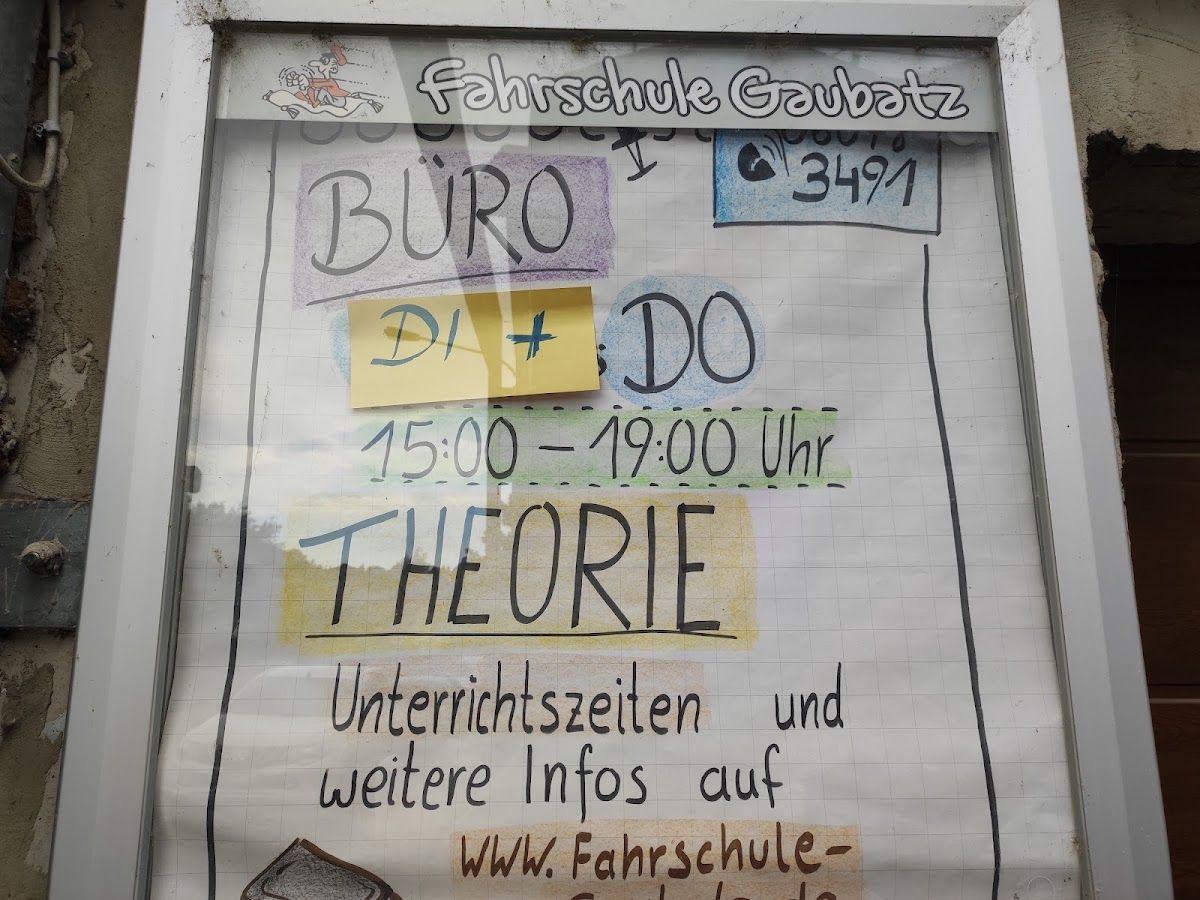 Fahrschule Gaubatz
BÜRO
3491
DI + DO
15:00 – 19:00 Uhr
THEORIE
Unterrichtszeiten und
weitere Infos auf
www.Fahrschule-